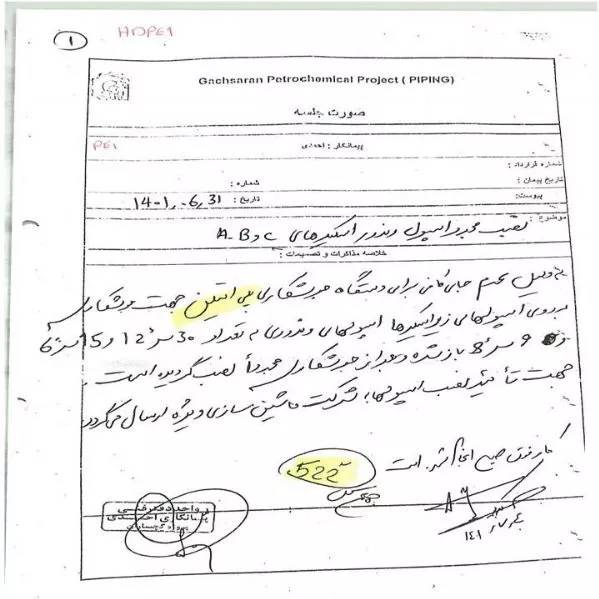 1
HDPE1
Gachsaran Petrochemical Project ( PIPING)
صورت جلسه
PE1
پیمانکار : احمدی
شماره قرارداد :
تاریخ پیمان :
شماره :
پیوست:
تاریخ : 1401.06.31
موضوع : نصب مجدد اسپول وندور اسکیدهای A-B و C
خلاصه مذاکرات و تصمیمات :
به دلیل عدم جای کافی برای دستگاه جوشکاری پلی اتیلن جهت جوشکاری
بر روی اسپولهای زیر اسکیدها اسپولهای وندوری به تعداد 30 سر "12 و 15 سر "6
و 9 سر "8 باز شده و بعد از جوشکاری مجدداً نصب گردیده است.
جهت تأئید نصب اسپولها به شرکت ماشین سازی ویژه ارسال میگردد
کار فوق صحیح انجام شده است
522"
واحد دفتر فنی
پیمانکاری احمدی